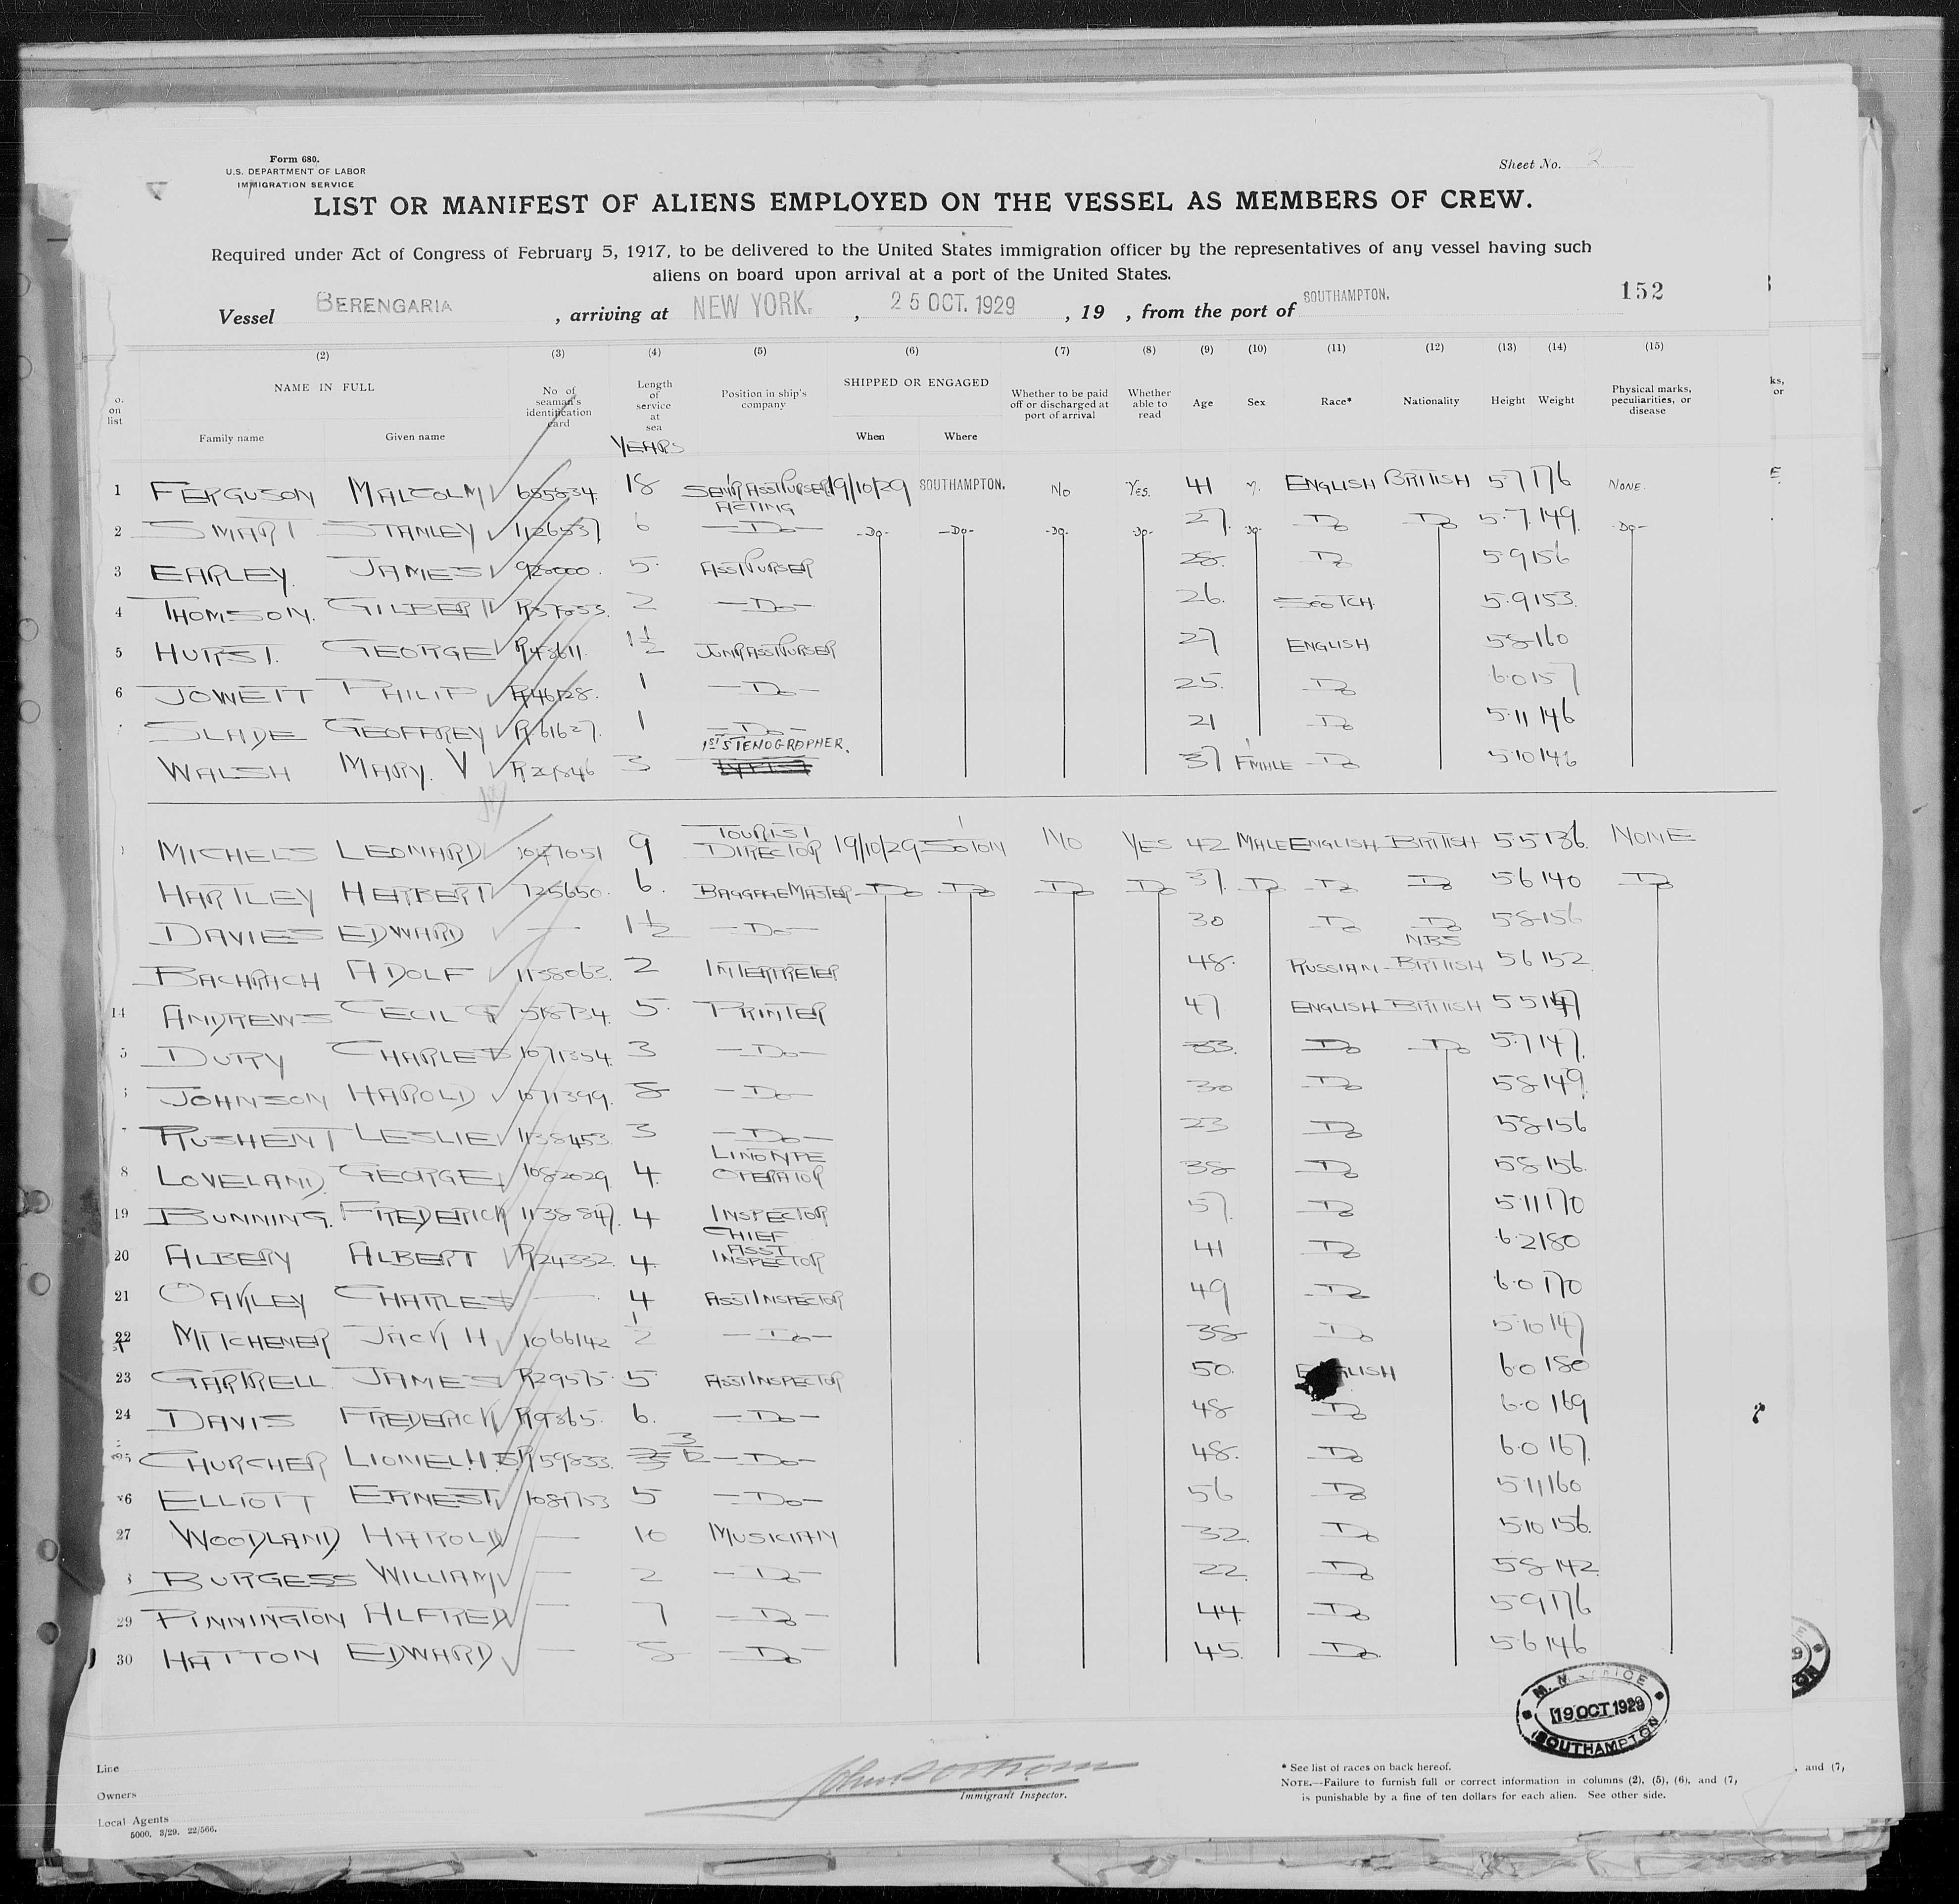 Form 680.
U.S. DEPARTMENT OF LABOR
IMMIGRATION SERVICE
Sheet No. 2
LIST OR MANIFEST OF ALIENS EMPLOYED ON THE VESSEL AS MEMBERS OF CREW.
Required under Act of Congress of February 5, 1917, to be delivered to the United States immigration officer by the representatives of any vessel having such
aliens on board upon arrival at a port of the United States.
Vessel BERENGARIA , arriving at NEW YORK. , 25 OCT. 1929 , 19 , from the port of SOUTHAMPTON. 152
(2) (3) (4) (5) (6) (7) (8) (9) (10) (11) (12) (13) (14) (15)
NAME IN FULL
Family name Given name
No of seaman's identification card
Length of service at sea
YEARS
Position in ship's company
SHIPPED OR ENGAGED
When Where
Whether to be paid off or discharged at port of arrival
Whether able to read
Age Sex Race* Nationality Height Weight
Physical marks, peculiarities, or disease
1 FERGUSON MALCOLM 655834 18 SENR ASST PURSER 19/10/29 SOUTHAMPTON. NO YES. 41 ENGLISH BRITISH 5 7 176 NONE.
2 SMART STANLEY 1126537 6 ACTING —DO— -DO- -DO- -DO- -DO- 27. -DO- DO DO 5.7. 149. -DO-
3 EARLEY. JAMES 928000. 5. ASST PURSER 28. DO 5 9 156
4 THOMSON. GILBERT R37853. 2 —DO— 26. SCOTCH. 5.9 153.
5 HURST. GEORGE R48611. 1½ JUNR ASST PURSER 27 ENGLISH 5 8 160
6 JOWETT PHILIP R46128. 1 —DO— 25. DO 6.0 157
SLADE GEOFFREY R.61627. 1 —DO— 21 DO 5.11 146
WALSH MARY. V R21846 3 1ST STENOGRAPHER. 37 FMALE DO 5 10 146
MICHELS LEONARD 1047051 9 TOURIST DIRECTOR 19/10/29 SOTON NO YES 42 MALE ENGLISH BRITISH 5 5 136. NONE
HARTLEY HERBERT 725650. 6. BAGGAGE MASTER DO DO DO DO 37. DO DO DO 5 6 140 DO
DAVIES EDWARD — 1½ —DO— 30 DO DO 5 8 156
BACHRACH ADOLF 1138063. 2 INTERPRETER 48. RUSSIAN N.B.S BRITISH 5 6 152
14 ANDREWS CECIL G 518734. 5. PRINTER 47 ENGLISH BRITISH 5 5 147
5 DURY CHARLES 1071354 3 —DO— 33. DO DO 5.7 147.
JOHNSON HAROLD 1071399. 8 —DO— 30 DO 5 8 149.
RUSHENT LESLIE 1138453 3 —DO— 23 DO 5 8 156
8 LOVELAND. GEORGE 1082029 4. LINOTYPE OPERATOR 38 DO 5 8 156.
19 BUNNING. FREDERICK 1138847. 4 INSPECTOR 57. DO 5.11 170
20 ALBERY ALBERT R24332. 4. CHIEF ASST INSPECTOR 41 DO 6.2 180
21 OAKLEY CHARLES — 4 ASST INSPECTOR 49 DO 6.0 170
22 MITCHENER JACK H 1066142 ½ —DO— 38 DO 5.10 147
23 GARTRELL JAMES R29575. 5 ASST INSPECTOR 50. ENGLISH 6.0 180
24 DAVIS FREDERICK R9365. 6. —DO— 48 DO 6.0 169
25 CHURCHER LIONEL. H. S. R59833. 3/12 —DO— 48. DO 6.0 167.
26 ELLIOTT ERNEST 1081753 5 —DO— 56 DO 5.11 160
27 WOODLAND HAROLD — 10 MUSICIAN 32. DO 5.10 156.
BURGESS WILLIAM — 2 —DO— 22. DO 5 8 142.
29 PINNINGTON ALFRED — 7 —DO— 44. DO 5 9 176
30 HATTON EDWARD — 8 —DO— 45. DO 5.6 146
19 OCT 1929
SOUTHAMPTON
Line
Owners
Local Agents
5000. 3/29. 22/566.
Immigrant Inspector.
* See list of races on back hereof.
NOTE.—Failure to furnish full or correct information in columns (2), (5), (6), and (7)
is punishable by a fine of ten dollars for each alien. See other side.
, and (7)